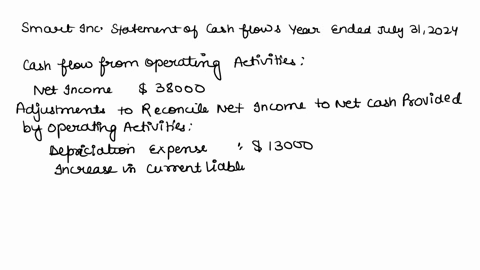 Smart Inc. Statement of Cash flows Year Ended July 31, 2024
Cash flow from Operating Activities:
Net Income $ 38000
Adjustments to Reconcile Net Income to Net Cash Provided
by Operating Activities:
Depriciation Expense : $ 13000
Increase in Current Liable